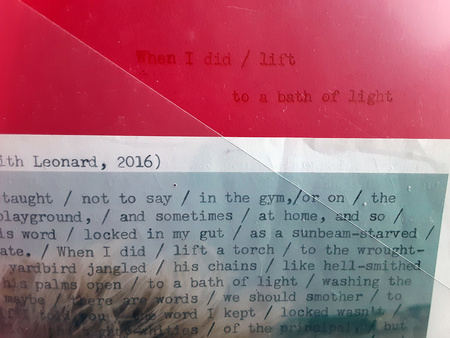 When I did / lift
to a bath of light
ith Leonard, 2016)
taught / not to say / in the gym,/or on / the
playground, / and sometimes / at home, and so /
is word / locked in my gut / as a sunbeam-starved /
ate. / When I did / lift a torch / to the wrought-
yardbird jangled / his chains / like hell-smithed
his palms open / to a bath of light / washing the
maybe / there are words / we should smother / to
told you / the word I kept / locked wasn't /
whities / of the principal, / but